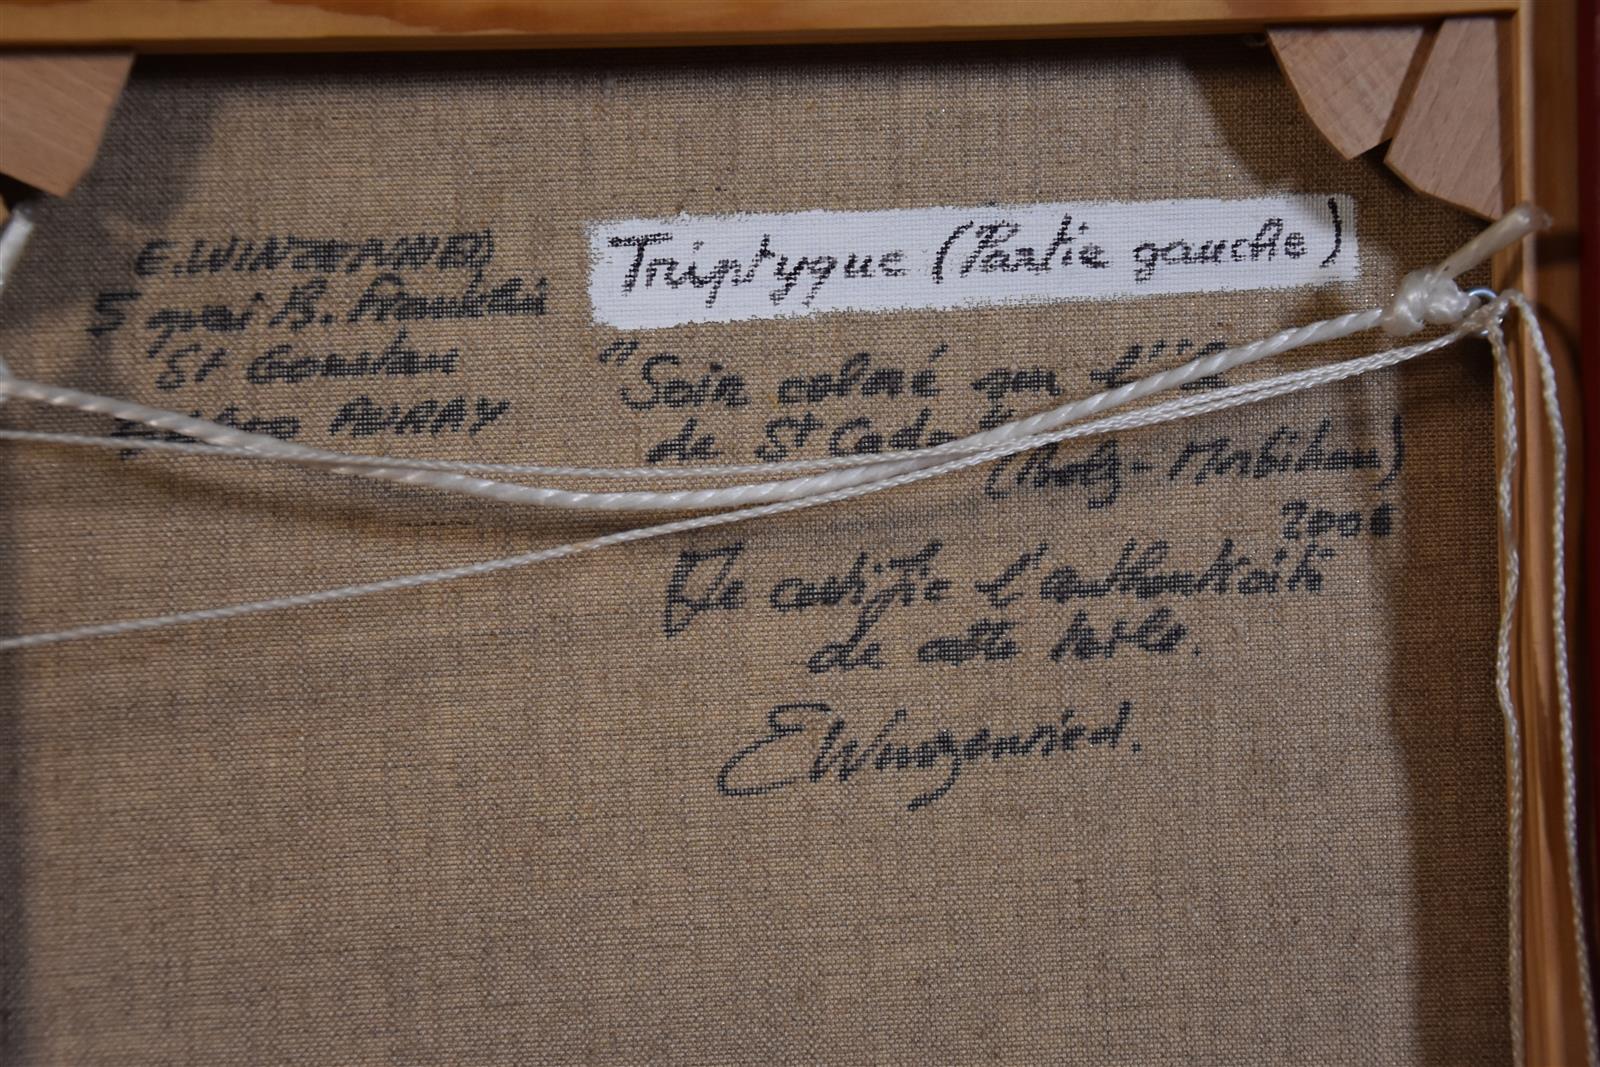 E. WINZENRIED
5 quai B. Franklin
St Goustan
AURAY
Triptyque (Partie gauche)
"Soir calmé sur l'île
de St Cado"
(Belz - Morbihan)
2006
Je certifie l'authenticité
de cette toile.
EWinzenried.